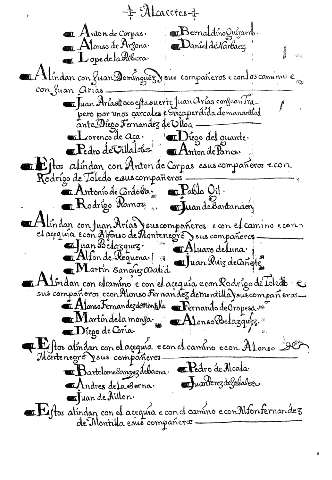 Alcaceres
Anton de Corpas
Bernaldino Guijarro
Alonso de Arjona
Daniel de Martinez
Lope de la
Alindan con Juan Dominguez y sus compañeros e con los camino e
con Juan Arias
Juan Arias suerte Juan Arias con Juan
pero por unos e
ante Diego Fernandez de Ulloa
Lorenco de Aca
Diego del guante
Pedro de Villalta
Anton de
Estos alindan con Anton de Corpas e sus compañeros e con
Rodrigo de Toledo e sus compañeros
Antonio de Cordoba
Pablo Gil
Rodrigo Ramos
Juan de Santander
Alindan con Juan Arias y sus compañeros e con el camino e con
el acequia e con Alfonso de Montenegro y sus compañeros
Juan Belazquez
Alvaro de Luna
Alfon de Requena
Juan Ruiz de Cañete
Martin Sanchez Madid
Alindan con el camino e con el acequia e con Rodrigo de Toledo e
sus compañeros e con Alonso Fernandez de mentilla y sus compañeros
Alonso Fernandez de Montilla
Fernando de Oropesa
Martin de la monja
Alonso Belazquez
Diego de Coria
Estos alindan con el acequia e con el camino e con Alonso de
Montenegro y sus compañeros
Bartolome Sanchez de baena
Pedro de Alcala
Andres de la Serna
Juan Perez de
Juan de Aillon
Estos alindan con el acequia e con el camino e con Alfon fernandez
de Montilla e sus compañeros